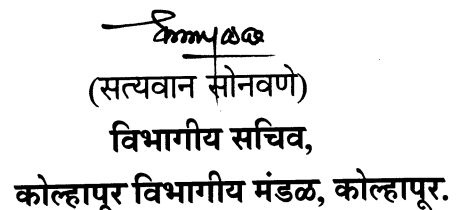 (सत्यवान सोनवणे)
विभागीय सचिव,
कोल्हापूर विभागीय मंडळ, कोल्हापूर.